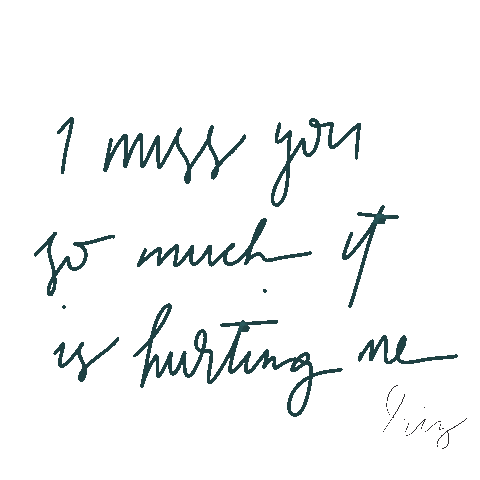 I miss you
so much it
is hurting me